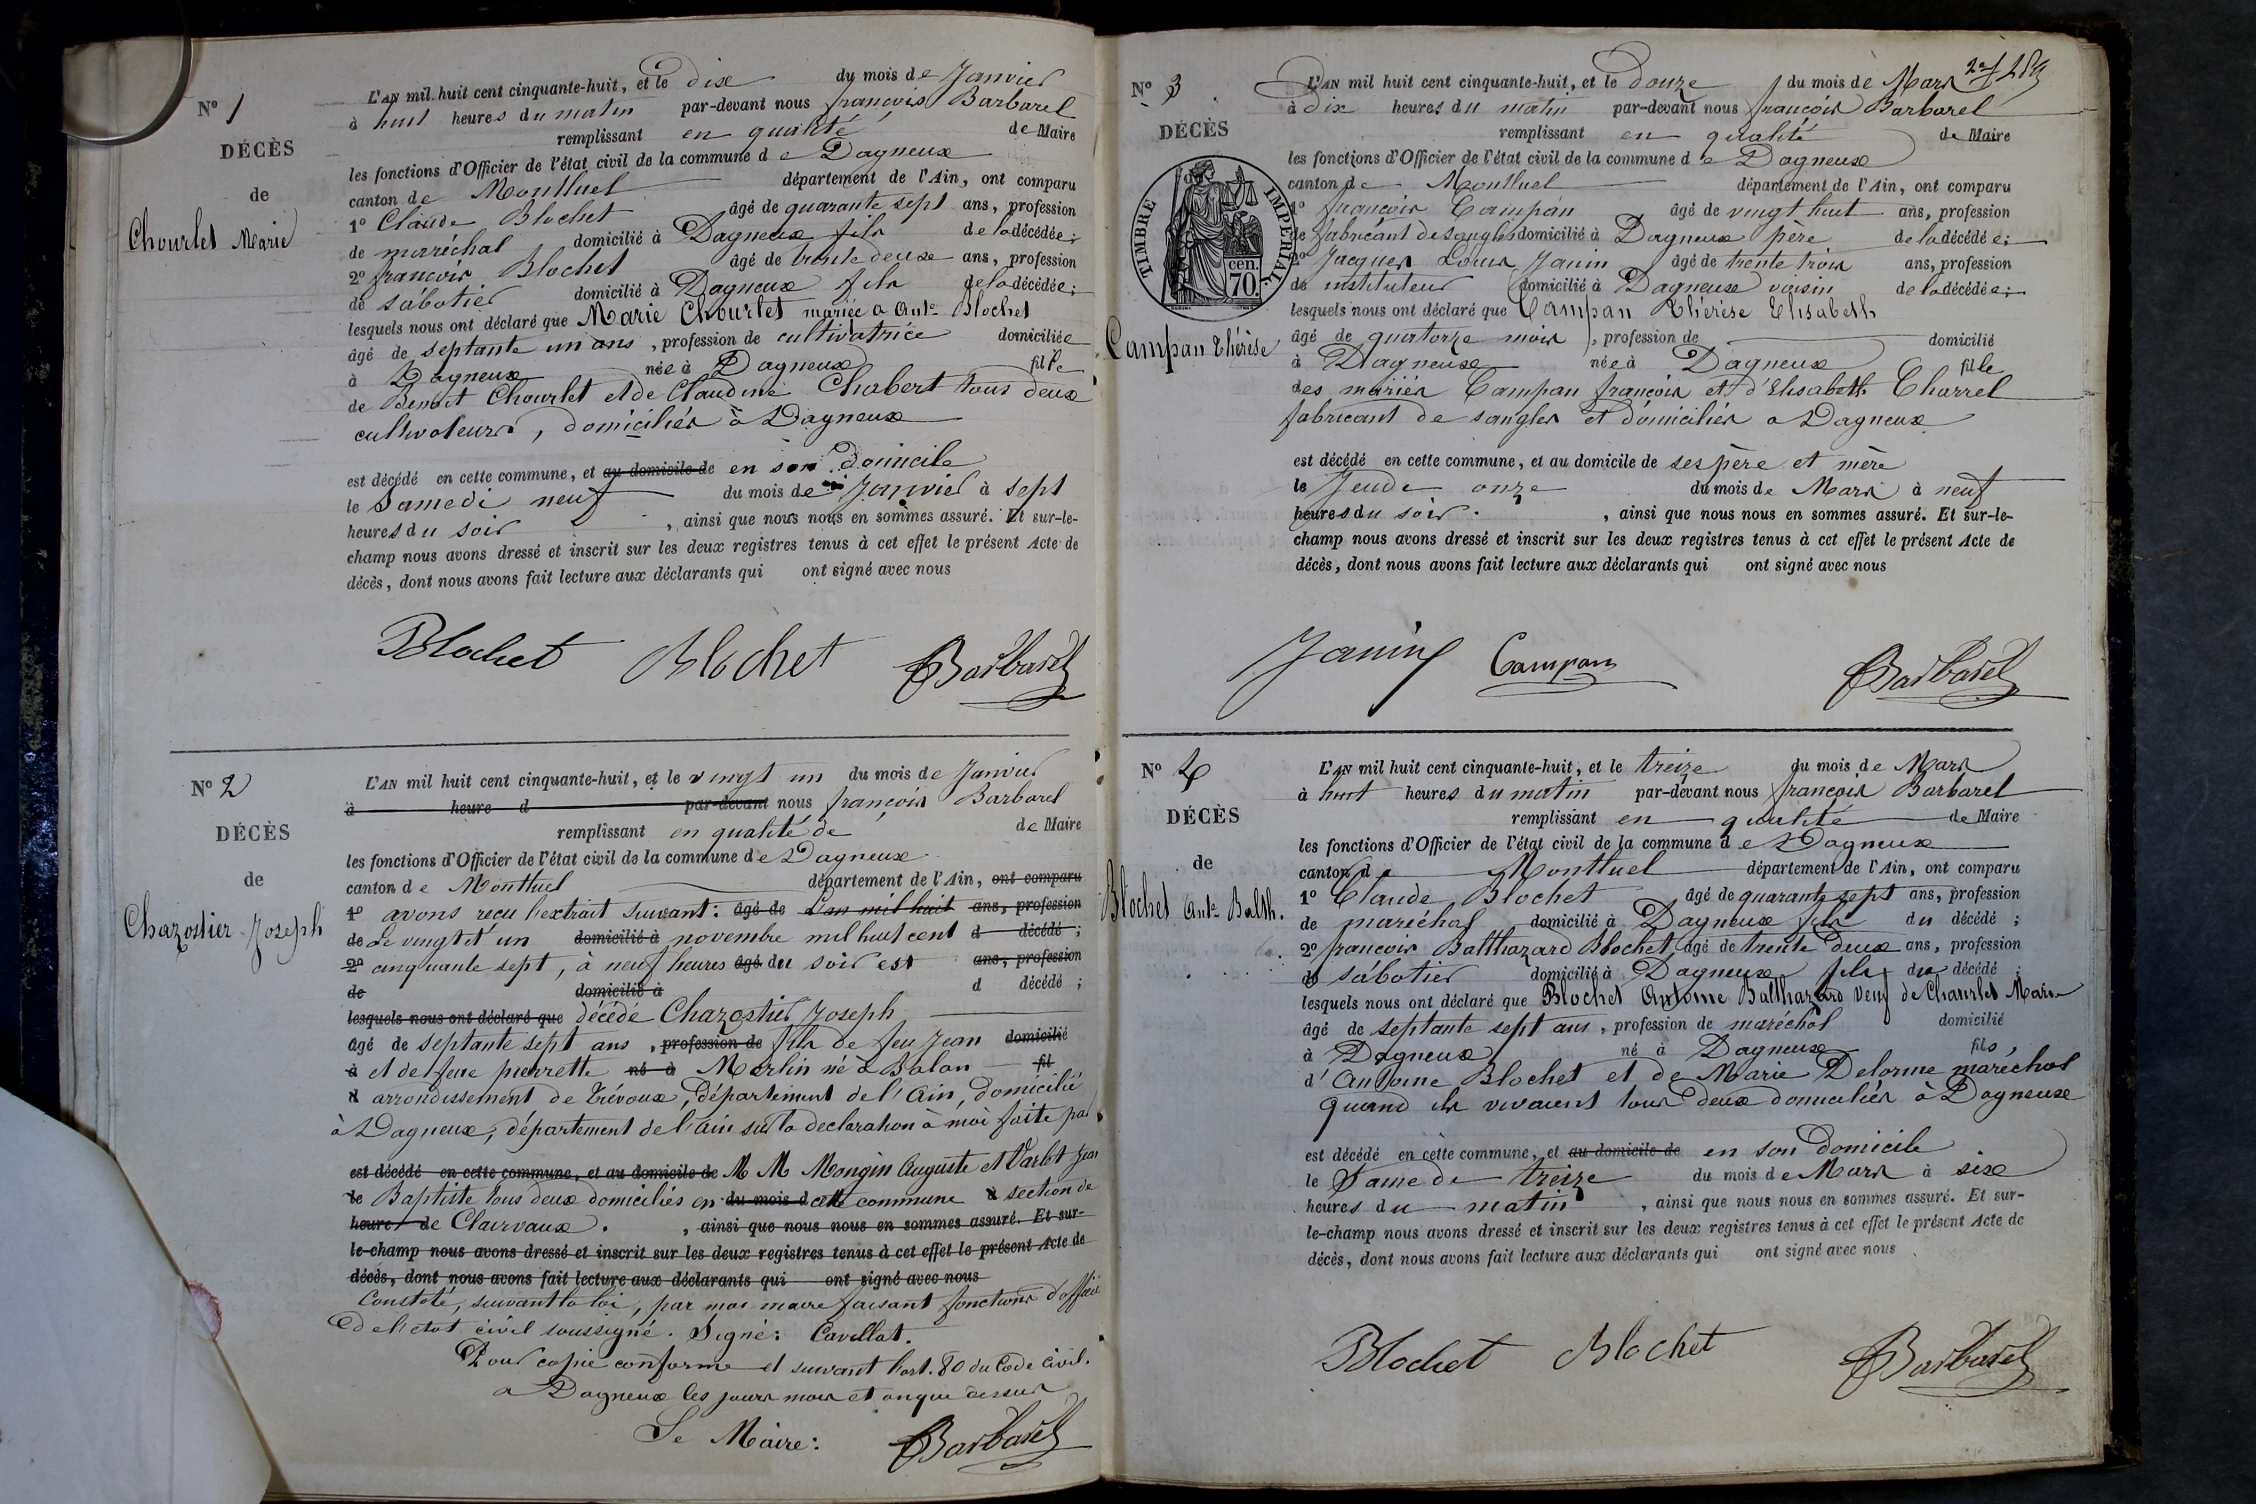 N° 1
DÉCÈS
de
Chourlet Marie
L'AN mil huit cent cinquante-huit, et le dix du mois de Janvier
à huit heures du matin par-devant nous françois Barbarel
remplissant en qualité de Maire
les fonctions d'Officier de l'état civil de la commune de Dagneux
canton de Montluel département de l'Ain, ont comparu
1° Claude Blochet âgé de quarante sept ans, profession
de maréchal domicilié à Dagneux fils de la décédée;
2° françois Blochet âgé de trente deux ans, profession
de sabotier domicilié à Dagneux fils de la décédée;
lesquels nous ont déclaré que Marie Chourlet mariée a Ant.e Blochet
âgé de septante un ans, profession de cultivatrice domiciliée
à Dagneux née à Dagneux fille
de Benoit Chourlet et de Claudine Chabert tous deux
cultivateurs, domiciliés à Dagneux
est décédé en cette commune, et au domicile de en son domicile
le Samedi neuf du mois de Janvier à sept
heures du soir, ainsi que nous nous en sommes assuré. Et sur-le-
champ nous avons dressé et inscrit sur les deux registres tenus à cet effet le présent Acte de
décès, dont nous avons fait lecture aux déclarants qui ont signé avec nous
Blochet Blochet Barbarel
N° 2
DÉCÈS
de
Chazostier Joseph
L'AN mil huit cent cinquante-huit, et le vingt un du mois de Janvier
à heure d par-devant nous françois Barbarel
remplissant en qualité de de Maire
les fonctions d'Officier de l'état civil de la commune de Dagneux
canton de Montluel département de l'Ain, ont comparu
1° avons reçu l'extrait suivant: âgé de L'an mil huit ans, profession
de Le vingt et un domicilié à novembre mil huit cent d décédé;
2° cinquante sept, à neuf heures âgé du soir est ans, profession
de domicilié à d décédé;
lesquels nous ont déclaré que décédé Chazostier Joseph
âgé de septante sept ans, profession de fils de feu Jean domicilié
à et de feue pierrette né à Merlin né à Balan fil
d arrondissement de Trévoux, département de l'Ain, domicilié
à Dagneux, département de l'ain sur la declaration à moi faite par
est décédé en cette commune, et au domicile de M M Mongin Auguste et Varlet Jean
le Baptiste tous deux domiciliés en du mois d cette commune à section de
heure de Clairvaux. , ainsi que nous nous en sommes assuré. Et sur-
le-champ nous avons dressé et inscrit sur les deux registres tenus à cet effet le présent Acte de
décès, dont nous avons fait lecture aux déclarants qui ont signé avec nous
Constaté, suivant la loi, par moi maire faisant fonctions d'officier
de l'etat civil soussigné. Signé: Cavillot.
Pour copie conforme et suivant l'art. 80 du Code Civil.
a Dagneux les jours mois et an que dessus
Le Maire: Barbarel
2e f 253
N° 3
DÉCÈS
TIMBRE IMPÉRIAL
cen.
70.
Campan Thérèse
L'AN mil huit cent cinquante-huit, et le douze du mois de Mars
à dix heures du matin par-devant nous françois Barbarel
remplissant en qualité de Maire
les fonctions d'Officier de l'état civil de la commune de Dagneux
canton de Montluel département de l'Ain, ont comparu
1° françois Campan âgé de vingt huit ans, profession
de fabricant de sangles domicilié à Dagneux père de la décédée;
2° Jacques Louis Janin âgé de trente trois ans, profession
de instituteur domicilié à Dagneux voisin de la décédée;
lesquels nous ont déclaré que Campan Thérèse Elisabeth
âgé de quatorze mois, profession de domicilié
à Dagneux née à Dagneux fille
des mariés Campan françois et d'Elisabeth Charrel
fabricant de sangles et domiciliés a Dagneux
est décédé en cette commune, et au domicile de ses père et mère
le Jeudi onze du mois de Mars à neuf
heures du soir. , ainsi que nous nous en sommes assuré. Et sur-le-
champ nous avons dressé et inscrit sur les deux registres tenus à cet effet le présent Acte de
décès, dont nous avons fait lecture aux déclarants qui ont signé avec nous
Janin Campan Barbarel
N° 4
DÉCÈS
de
Blochet Ant.e Balth.
L'AN mil huit cent cinquante-huit, et le treize du mois de Mars
à huit heures du matin par-devant nous françois Barbarel
remplissant en qualité de Maire
les fonctions d'Officier de l'état civil de la commune de Dagneux
canton de Montluel département de l'Ain, ont comparu
1° Claude Blochet âgé de quarante sept ans, profession
de maréchal domicilié à Dagneux fils du décédé;
2° françois Balthazard Blochet, âgé de trente deux ans, profession
de sabotier domicilié à Dagneux fils du décédé;
lesquels nous ont déclaré que Blochet Antoine Balthazard veuf de Chourlet Marie
âgé de septante sept ans, profession de maréchal domicilié
à Dagneux né à Dagneux fils
d'Antoine Blochet et de Marie Delorme maréchal
quand ils vivaient tous deux domiciliés à Dagneux
est décédé en cette commune, et au domicile de en son domicile
le Samedi treize du mois de Mars à six
heures du matin, ainsi que nous nous en sommes assuré. Et sur-
le-champ nous avons dressé et inscrit sur les deux registres tenus à cet effet le présent Acte de
décès, dont nous avons fait lecture aux déclarants qui ont signé avec nous
Blochet Blochet Barbarel